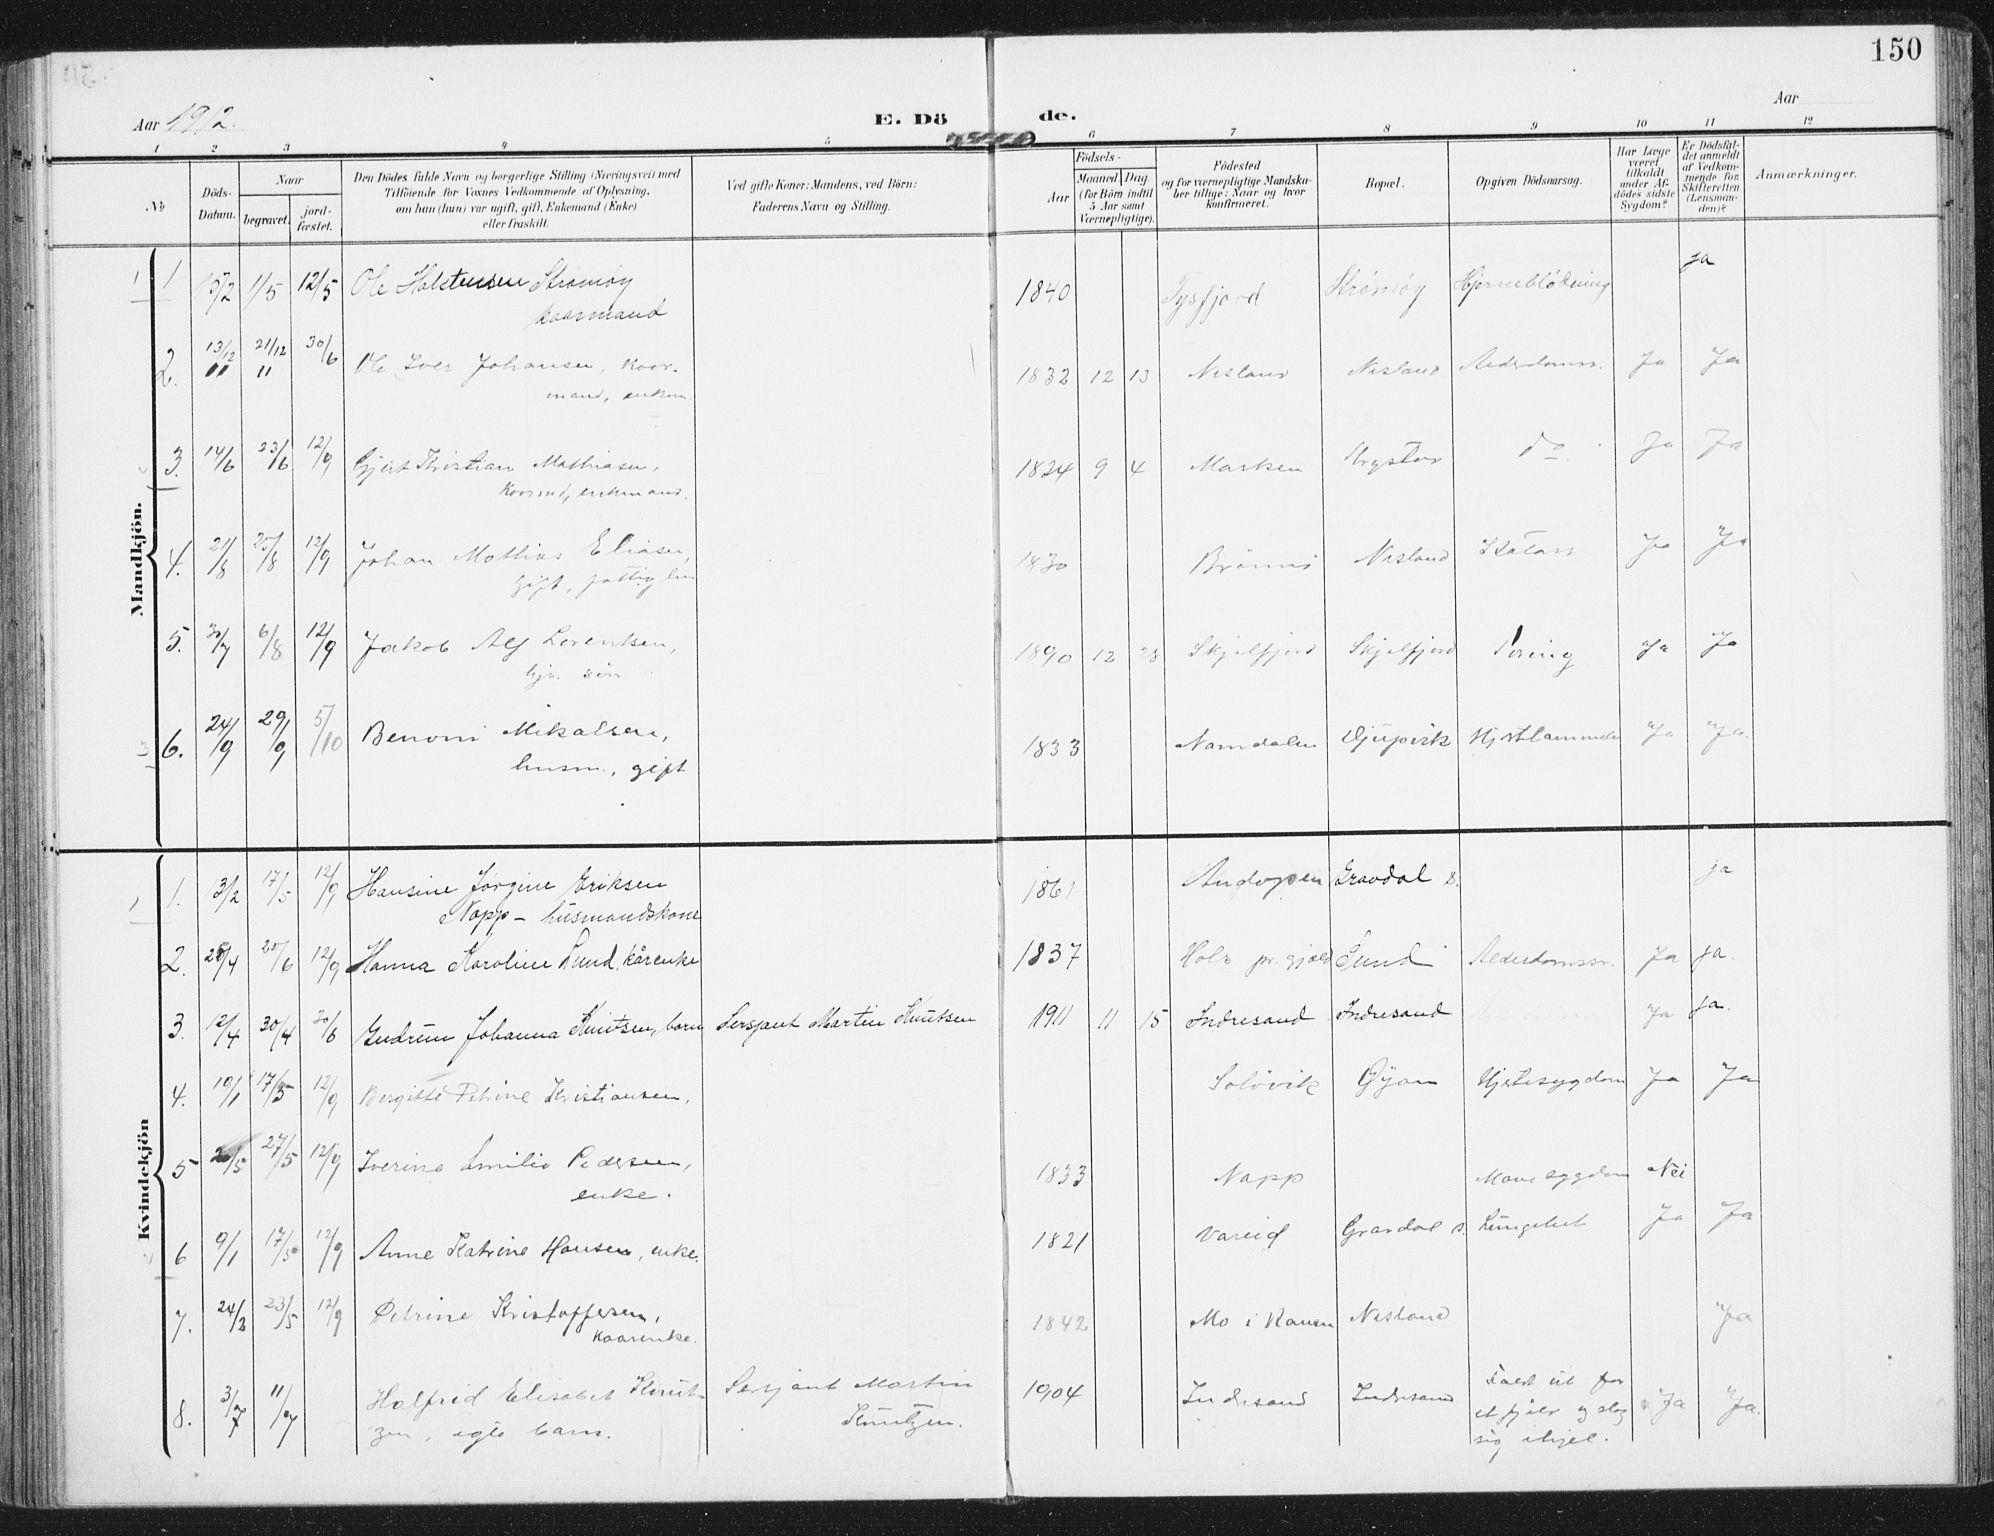 150
Aar 1912. E. Dö de. Aar
1 2 3 4 5 6 7 8 9 10 11 12
No
Döds-Datum.
Naar
begravet. jord-fæstet.
Den Dödes fulde Navn og borgerlige Stilling (Næringsvei) med
Tilföiende for Voxnes Vedkommende af Oplysning,
om han (hun) var ugift, gift, Enkemand (Enke)
eller fraskilt.
Ved gifte Koner: Mandens, ved Börn:
Faderens Navn og Stilling.
Födsels-
Aar
Maaned Dag
(for Börn indtil
5 Aar samt
Værnepligtige).
Födested
og for værnepligtige Mandska-
ber tillige: Naar og hvor
konfirmeret.
Bopæl.
Opgiven Dödsaarsag.
Har Læge
været
tilkaldt
under Af-
dödes sidste
Sygdom?
Er Dödsfal-
det anmeldt
af Vedkom-
mende for
Skifteretten
(Lensman-
den)?
Anmærkninger.
Mandkjön.
1 15/2 1/5 12/5 Ole Holstensen Strømøy 1840 Tysfjord Strømøy Hjerneblödning ja
kaarmand
2. 13/12 11 21/12 11 30/6 Ole Iver Johansen, koor- 1832 12 13 Nesland Nesland Alderdomss. Ja Ja
mand, enkem.
3. 14/6 23/6 12/9 Gjert Kristian Mathiasen, 1824 9 4 Marken do. Ja Ja
Koormd, enkemand.
4. 21/8 25/8 12/9 Johan Mathias Eliasen, 1830 Brønnö Nesland Ja Ja
gift, fattiglem
5. 30/7 6/8 12/9 Jakob Alf Lorentsen, 1890 12 28 Skjelfjord Skjelfjord Tæring Ja Ja
hjv. søn
6. 24/9 29/9 5/10 Benoni Mikalsen, 1833 Namdalen Djupvik Hjertlammelse Ja Ja.
husm., gift
Kvindekjön
1. 13/2 17/5 12/9 Hansine Jørgine Eriksen 1861 Andopen Gravdal s. ja
Napp - husmandskone
2. 28/4 20/6 12/9 Hanna Karoline Lund, kårenke 1837 Hols pr.gjæld Sund Alderdomssv. Ja ja.
3. 12/4 30/4 30/6 Gudrun Johanna Knutsen, barn Sersjant Martin Knutsen 1911 11 15 Indresand Indresand Ja ja.
4. 10/1 17/5 12/9 Bergitte Petrine Kristiansen, Solövik Øyan Hjertesygdom Ja Ja
5 20/5 27/5 12/9 Iverine Emilie Pedersen, 1833 Napp Mavesygdom Nei
enke.
6 9/1 17/5 12/9 Anne Katrine Hansen, enke. 1821 Vareid Gravdal s. Lungebet Ja Ja
7. 24/2 23/5 12/9 Petrine Kristoffersen, 1842 Mo i Ranen Nesland Ja
Kaarenke.
8. 3/7 11/7 Halfrid Elisabet Knut- Sersjant Martin 1904 Indresand Indresand Faldt ut for Ja Ja.
zen, egte barn. Knutzen. et fjeld og slog
sig ihjel.